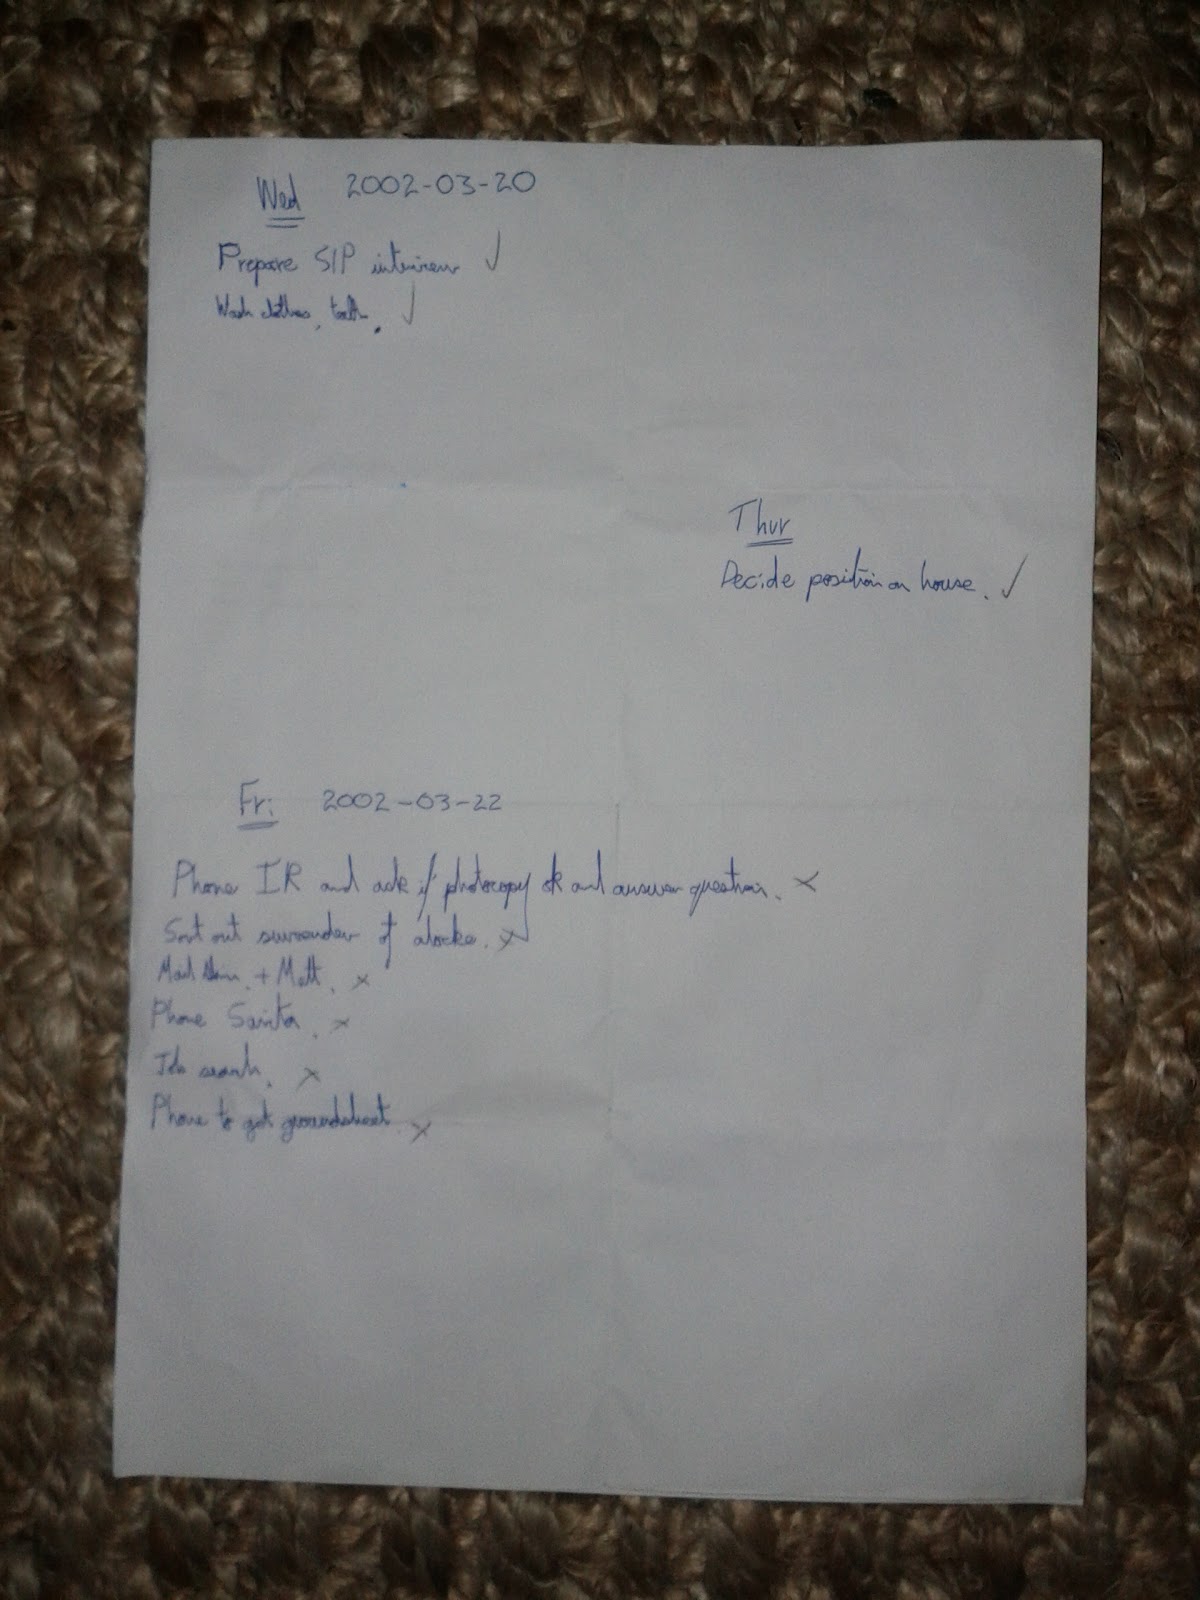 Wed 2002-03-20
Prepare SIP interview ✓
Wash clothes, teeth. ✓
Thur
Decide position on house. ✓
Fri 2002-03-22
Phone IR and ask if photocopy ok and answer question. ×
Sort out surrender of ×
Mail + Matt. ×
Phone Savita. ×
Job search. ×
Phone to get groundsheet. ×